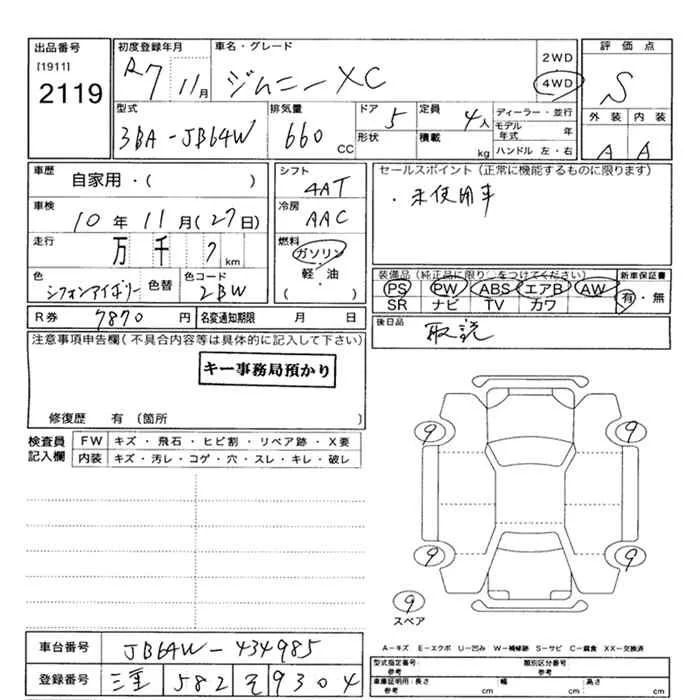 出品番号
[1911]
2119
初度登録年月
R7 11月
車名・グレード
ジムニー XC
2WD
4WD
評価点
S
外装 内装
A A
型式
3BA-JB64W
排気量
660 CC
ドア 5
形状
定員 4人
積載 kg
ディーラー・並行
モデル年式 年
ハンドル 左・右
車歴
自家用・( )
シフト
4AT
セールスポイント(正常に機能するものに限ります)
・未使用車
車検
10年11月(27日)
冷房
AAC
走行
万 千 7 km
燃料
ガソリン
軽・油
( )
色
シフォンアイボリー
色替
色コード
2BW
装備品(純正品に限り○をつけてください)
PS PW ABS エアB AW
SR ナビ TV カワ
新車保証書
有・無
R券 7870円
名変通知期限 月 日
後日品
取説
注意事項申告欄(不具合内容等は具体的に記入して下さい)
キー事務局預かり
修復歴 有(箇所 )
検査員記入欄
FW キズ・飛石・ヒビ割・リペア跡・X要
内装 キズ・汚レ・コゲ・穴・スレ・キレ・破レ
9 9
9 9
9
スペア
車台番号 JB64W-434985
登録番号 三重 582 そ 9304
A-キズ E-エクボ U-凹み W-補修跡 S-サビ C-腐食 XX-交換済
型式指定番号: 参考
類別区分番号
車庫証明用:長さ 参考 cm 幅 cm 高さ cm